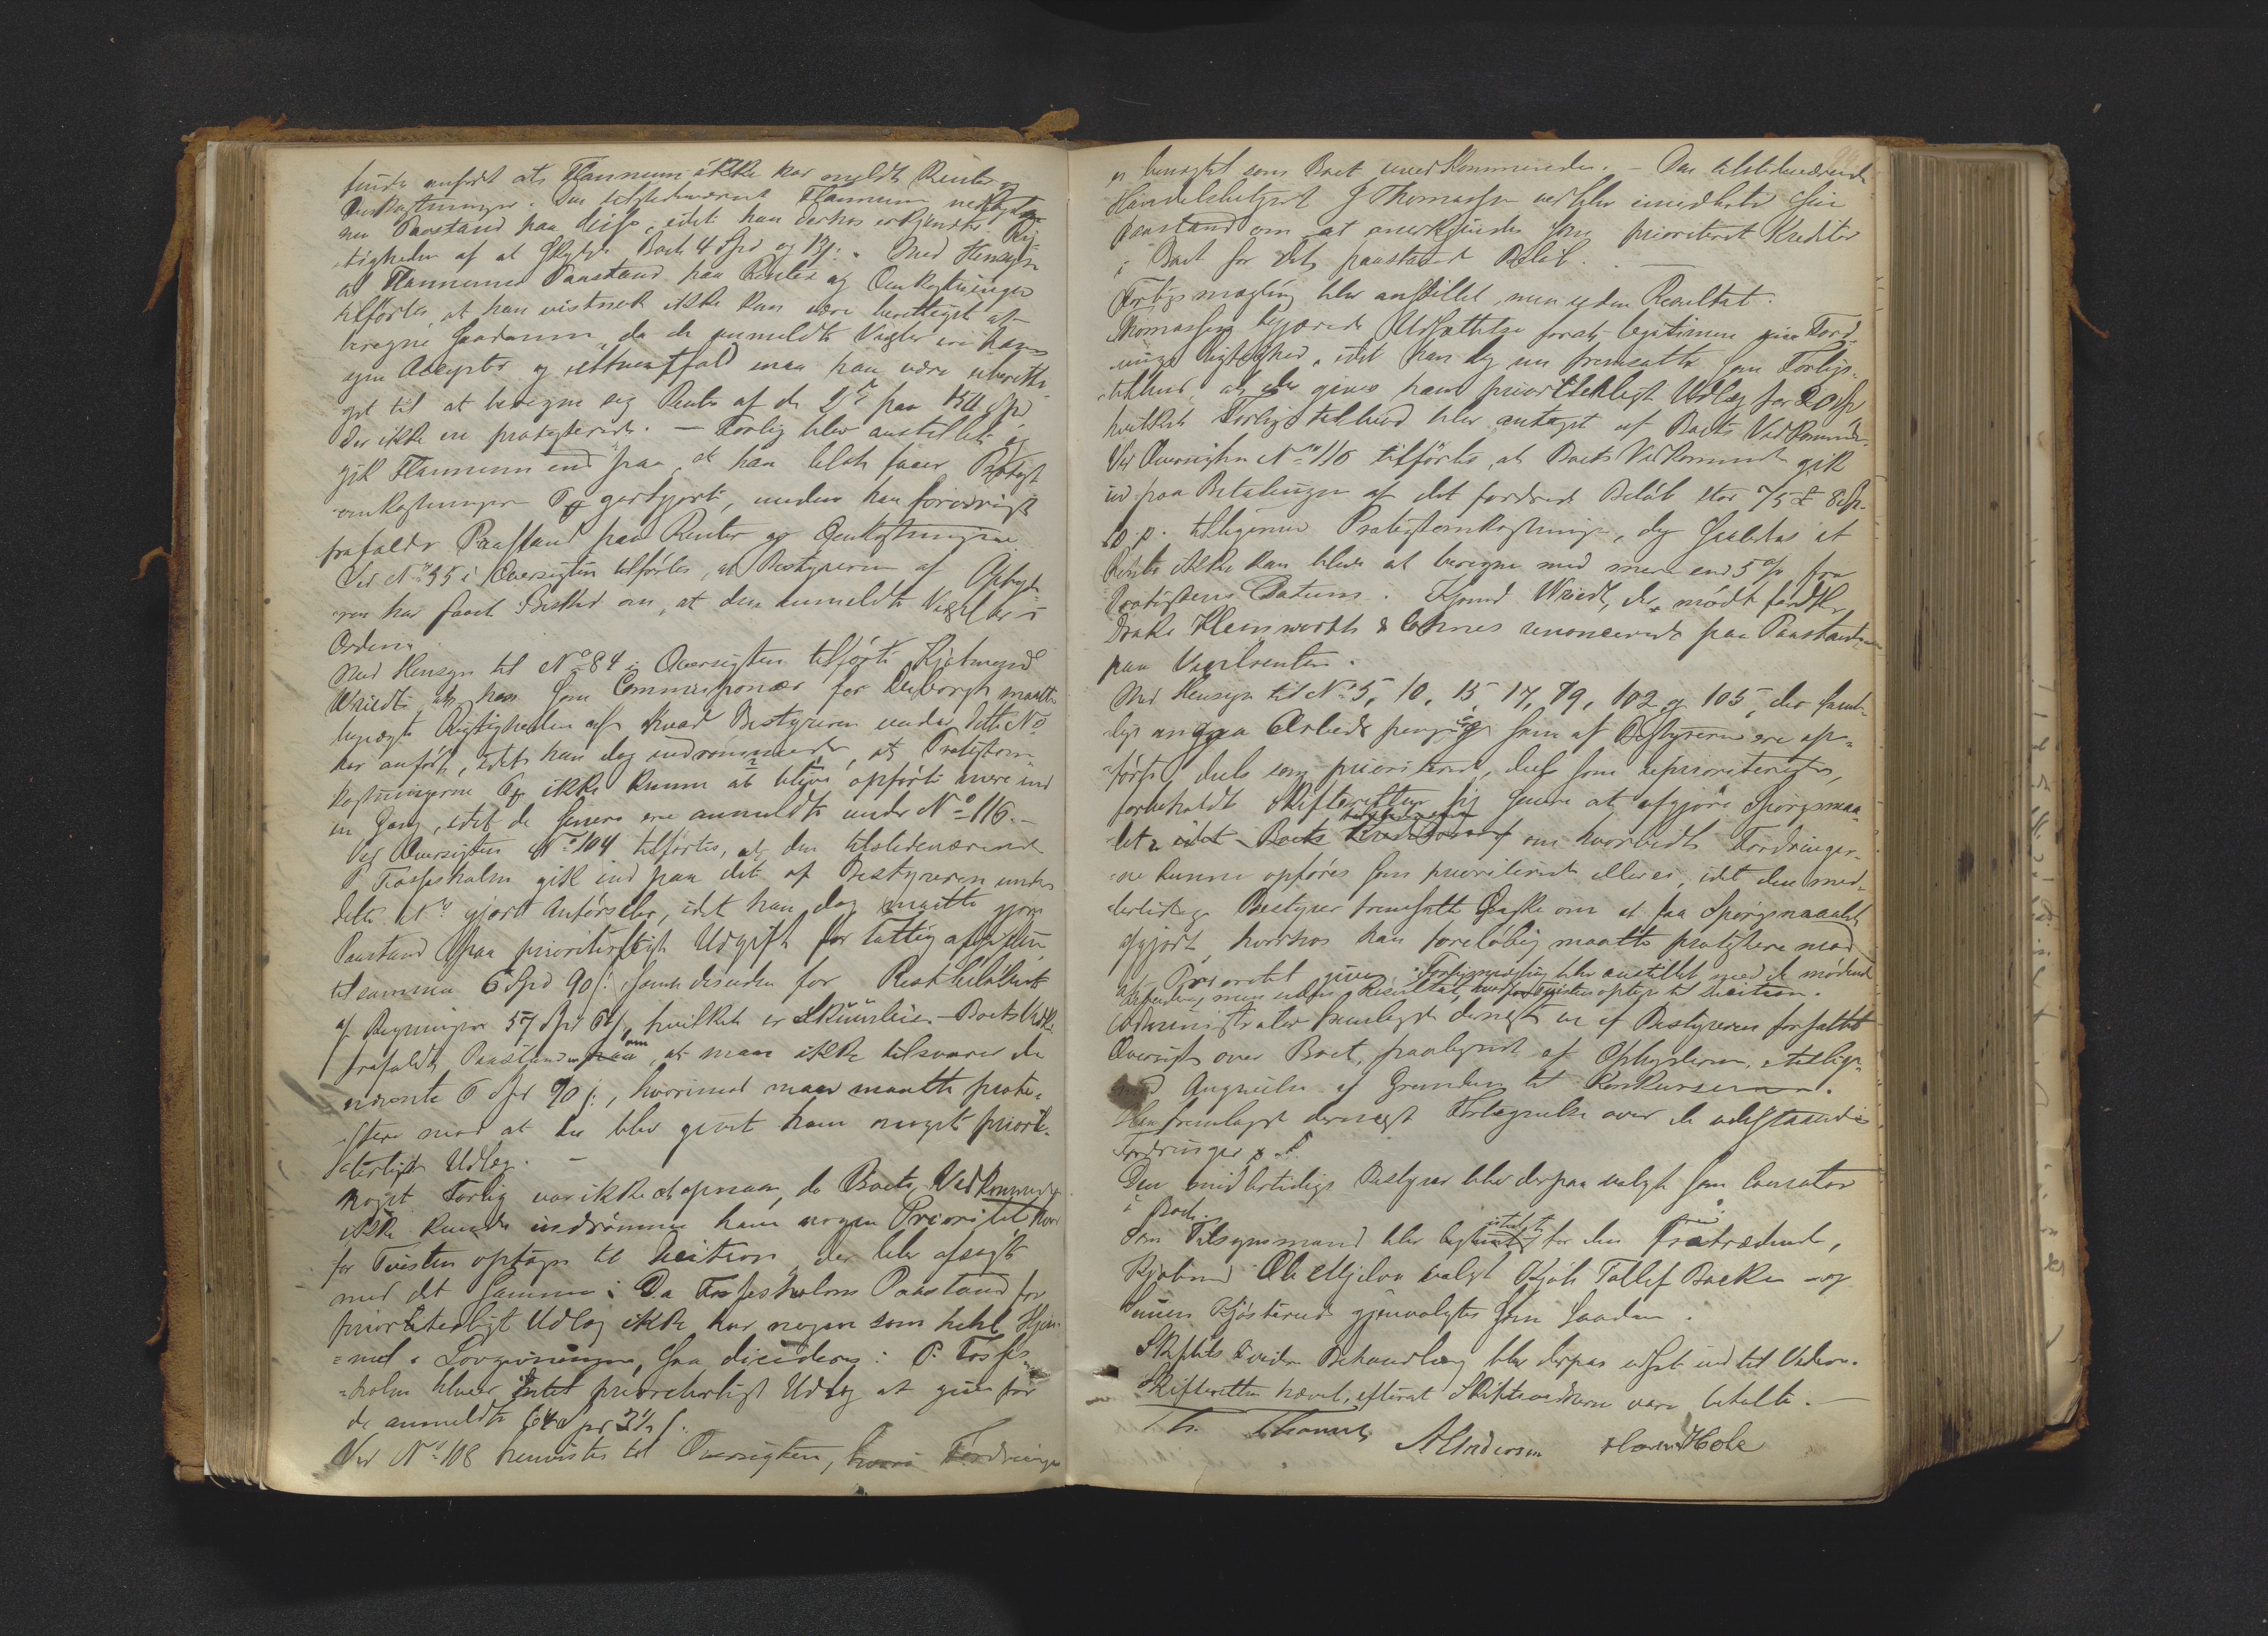 finde anført at Flannum ikke har meldt Renter og
Omkostninger. Den tilstedeværende Flannum nedlagde
nu Paastand paa disse, idet han derhos erkjendte Rig-
tigheden af at skylde Boet 4 Spd og 12 s. Med Hensyn
til Flannums Paastand paa Renter og Omkostninger
tilførtes, at han vistnok ikke kan være berettiget at
beregne saadanne, da de anmeldte Vexler ere hans
egne Accepter og ethvertfald maa han være uberetti-
get til at beregne sig Renter af de 2de paa 150 Spd
der ikke ere protesterede. — Forlig blev anstillet og
gik Flannum ind paa, at han blot faaer Protest
omkostninger godtgjort, medens han forøvrigt
frafaldt Paastand paa Renter og Omkostninger.
Ved No 55 i Oversigten tilførtes, at Bestyreren af Opbyde-
ren har faaet Besked om, at den anmeldte Vexel er i
Orden.
Med Hensyn til No 84 i Oversigten tilførte Kjøbmand
Wriedt, at han som Commissionær for maatte
benægte Rigtigheden af hvad Bestyreren under dette No
har anført, idet han dog indrømmede, at Protestom-
kostningerne ikke kunne at blive opført mere end
en Gang, idet de senere ere anmeldte under No 116. —
Ved Oversigten No 104 tilførtes, at den tilstedeværende
P. Fossesholm gik ind paa det af Bestyreren under
dette No gjorte Anførsler, idet han dog maatte gjøre
Paastand paa prioritetsligt Udgift for Fattigafgiften
tilsammen 6 Spd 90 s. samt desuden for Restbeløbet
af Regningen 57 Spd, hvilket er Skuurleie. — Boets Vedk.
frafaldt Paastanden om, at man ikke tilsvarer de
nævnte 6 Spd 90 s., hvorimod man maatte prote-
stere mod at der blev givet ham noget priori-
tetligt Udlæg. —
Noget Forlig var ikke at opnaae, da Boets Vedkommende
ikke kunde indrømme ham nogen Prioritet, hvor
for Tvisten optages til Decision, der blev afsagt
med det samme: Da Fossesholms Paastand for
prioritetligt Udlæg ikke har nogen som helst Hjem-
mel i Lovgivningen, saa decideres: P. Fosses-
holm bliver intet prioritetligt Udlæg at give for
de anmeldte 64 Spd 2½ s.
Ved No 108 henvistes til Oversigten, hvori Fordringen
er benægtet som Boet uvedkommende. — Den tilstedeværende
Handelsbetjent J Thomassen vedblev imidlertid sin
Paastand om at anerkjendes som prioriteret Kreditor
i Boet for det paastaaede Beløb.
Forligsmægling blev anstillet, men uden Resultat.
Thomassen begjærede Udsættelse forat legitimere sin Ford-
rings Rigtighed, idet han dog nu fremsatte som Forligs-
tilbud, at der gives ham prioritetligt Udlæg for 20 Spd
hvilket Forligstilbud blev antaget af Boets Vedkommende.
Ved Oversigten No 116 tilførtes, at Boets Vedkommende gik
ind paa Betalingen af det fordrede Beløb stor 75 £ 8 sh.
10 p. tilligemed Protestomkostninger, dog saaledes at
Renter ikke kan blive at beregne med mere end 5 % fra
Protestens Datum. Kjøbmd Wriedt, der mødte for
Drake Kleinworth & Cohnes renoncerede paa Paastanden
paa Vexelrenten.
Med Hensyn til No 5, 10, 15, 17, 79, 102 og 105, der samt-
lige angaa Arbeidspenge som af Bestyreren ere op-
ført, dels som prioriterede, dels som uprioriterede,
forbeholdt Skifteretten sig senere at afgjøre Spørgsmaa-
let om hvorvidt Fordringer-
ne kunne opføres som prioriterede eller ei, idet den mid-
lertidige Bestyrer fremsatte Ønske om at faa Spørgsmaalet
afgjort, hvorhos han foreløbig maatte protestere mod
at Prioritet gives. Forligsmægling blev anstillet med de mødende
men uden Resultat, hvorfor Tvisten optages til Decision.
Administrator fremlagde dernæst en af Bestyreren forfattet
Oversigt over Boet, paategnet af Opbyderen, tillige-
med Angivelse af Grunden til Konkursen.
Han fremlagde dernæst Fortegnelse over de udestaaende
Fordringer.
Den midlertidige Bestyrer blev derpaa valgt som Curator
i Boet.
Som Tilsynsmand blev istedetfor den fratrædende,
Kjøbmd Ole Mjelva valgt Kjøbm Tollef Backe og
Kjøsterud gjenvalgtes som saadan.
Skiftets videre Behandling blev derpaa udsat ind til Videre.
Skifteretten hævet, efterat Skiftevidnerne vare betalte. —
Th. Thomle A Andersen Hole